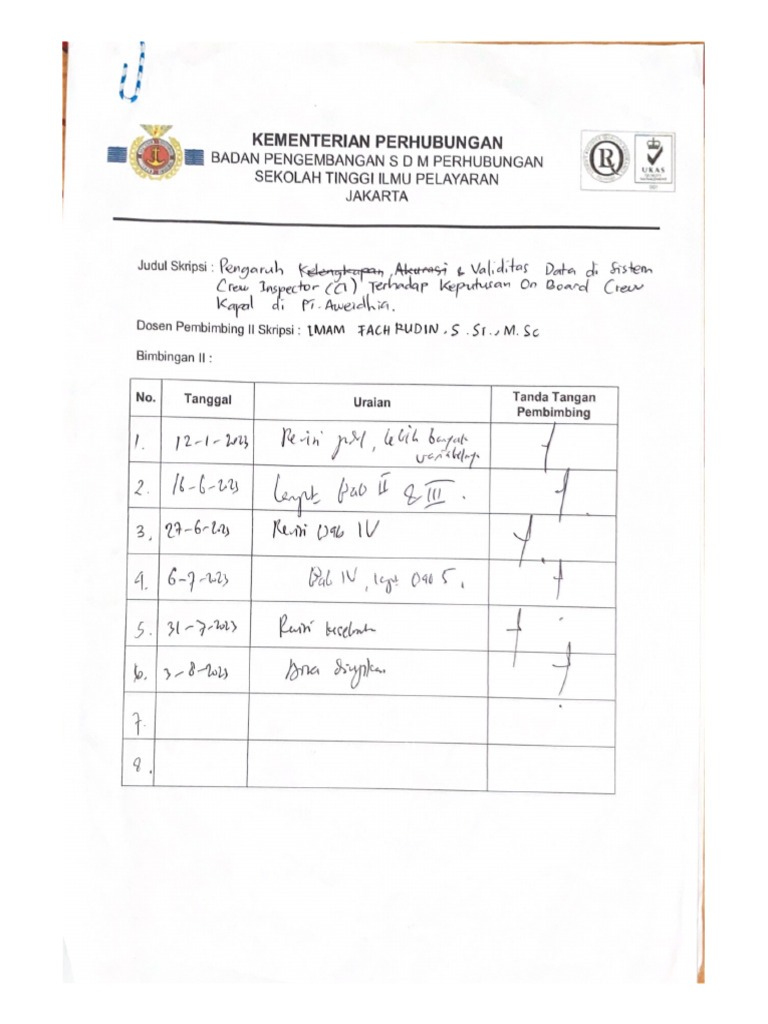 KEMENTERIAN PERHUBUNGAN
BADAN PENGEMBANGAN S D M PERHUBUNGAN
SEKOLAH TINGGI ILMU PELAYARAN
JAKARTA
R
UKAS
Judul Skripsi : Pengaruh Kelengkapan, Akurasi & Validitas Data di Sistem
Crew Inspector (CI) Terhadap Keputusan On Board Crew
Kapal di PT.
Dosen Pembimbing II Skripsi : IMAM FACHRUDIN, S.ST., M.Sc
Bimbingan II :
No. Tanggal Uraian Tanda Tangan Pembimbing
1. 12-1-2023 Revisi, lebih banyak
variabelnya
2. 16-6-2023 Lanjut Bab II & III.
3. 27-6-2023 Revisi Bab IV
4. 6-7-2023 Bab IV, lanjut Bab 5.
5. 31-7-2023 Revisi
6. 3-8-2023
7.
8.